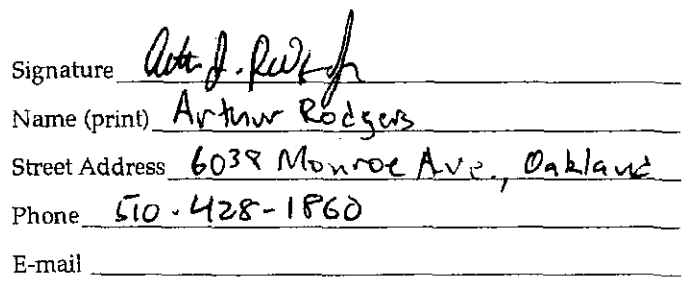 Signature
Name (print) Arthur Rodgers
Street Address 6038 Monroe Ave., Oakland
Phone 510-428-1860
E-mail